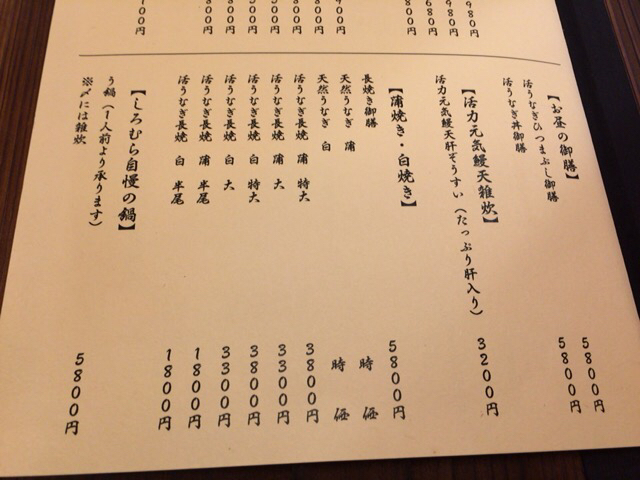 【お昼の御膳】
活うなぎひつまぶし御膳 5800円
活うなぎ丼御膳 5800円
【活力元気鰻天雑炊】
活力元気鰻天肝ぞうすい（たっぷり肝入り） 3200円
【蒲焼き・白焼き】
長焼き御膳 5800円
天然うなぎ 蒲 時価
天然うなぎ 白 時価
活うなぎ長焼 蒲 特大 3800円
活うなぎ長焼 蒲 大 3300円
活うなぎ長焼 白 特大 3800円
活うなぎ長焼 白 大 3300円
活うなぎ長焼 蒲 半尾 1800円
活うなぎ長焼 白 半尾 1800円
【しろむら自慢の鍋】
う鍋（1人前より承ります） 5800円
※〆には雑炊